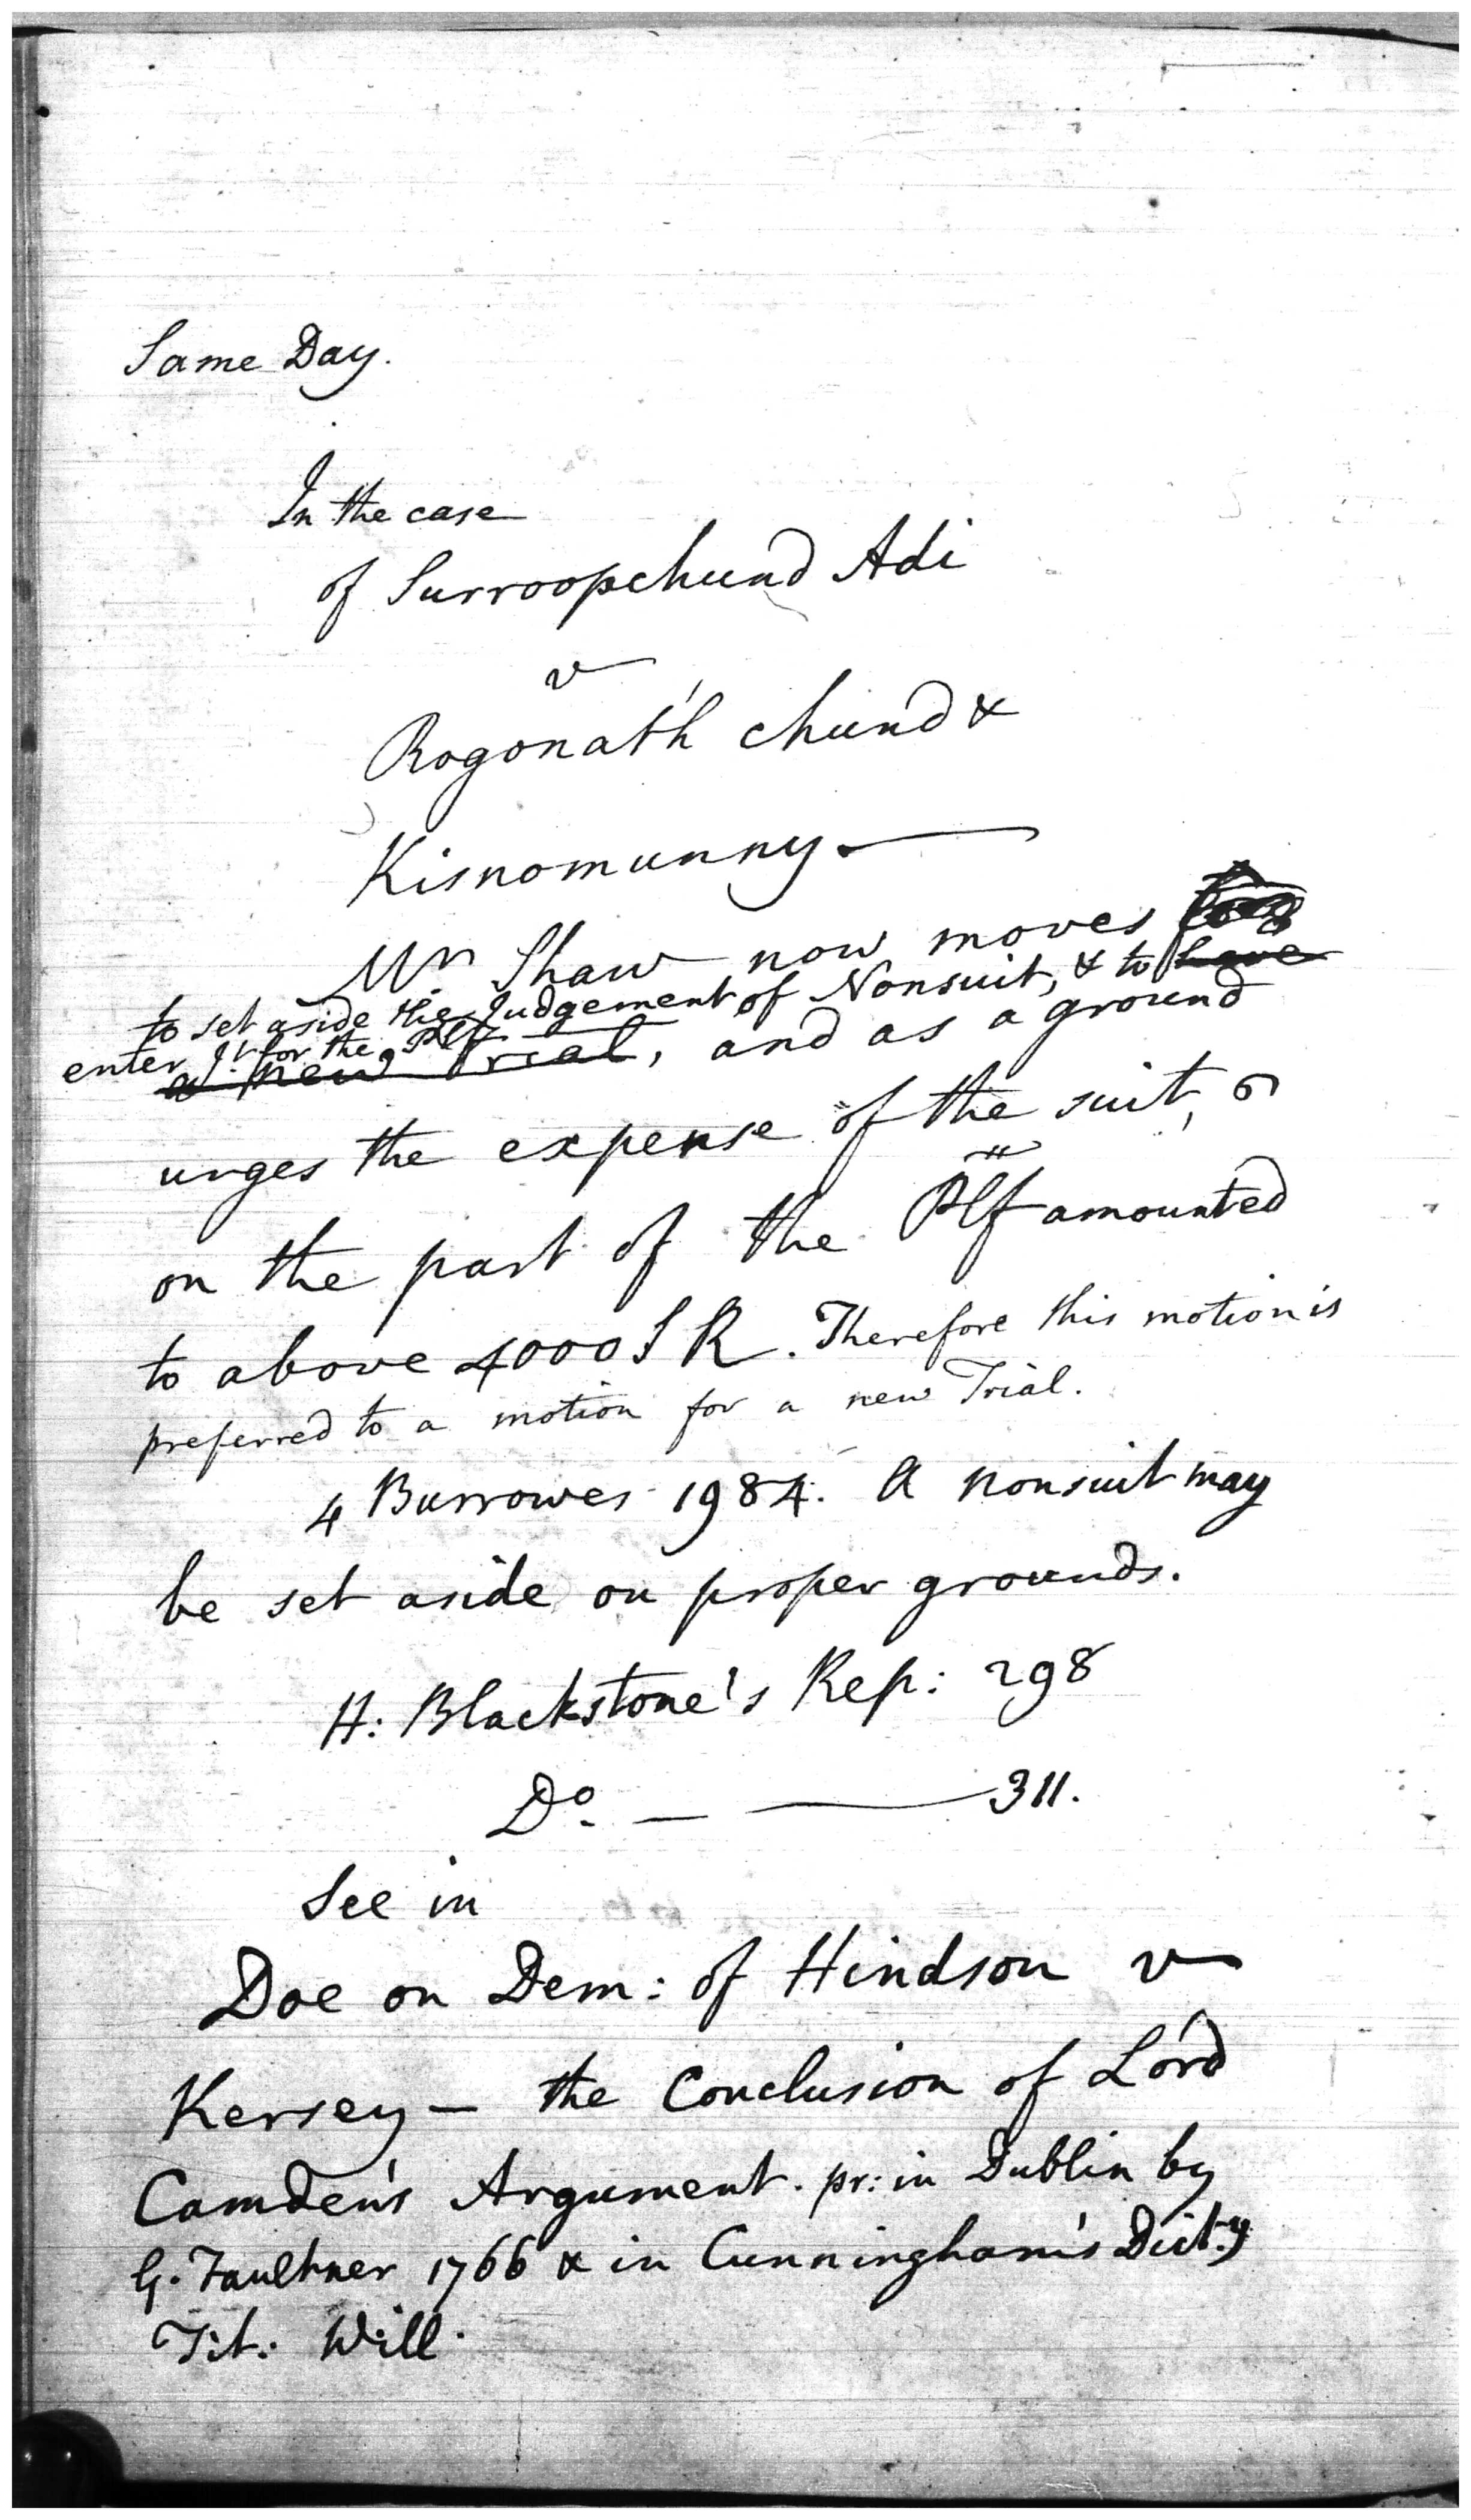 Same Day.
In the case
of Surroopchund Adi
v
Rogonath Chund &
Kisnomunny —
Mr Shaw now moves
to set aside the Judgement of Nonsuit, & to have
enter Jt. for the Plf
a new Trial, and as a ground
urges the expense of the suit,
on the part of the Plf amounted
to above 4000 S R. Therefore this motion is
preferred to a motion for a new Trial.
4 Burrowes 1984. A nonsuit may
be set aside on proper grounds.
H: Blackstone's Rep: 298
Do. — — 311.
See in
Doe on Dem: of Hindson v
Kersey — the Conclusion of Lord
Camden's Argument. pr: in Dublin by
G. Faulkner 1766 & in Cunningham's Dict.y
Tit: Will.